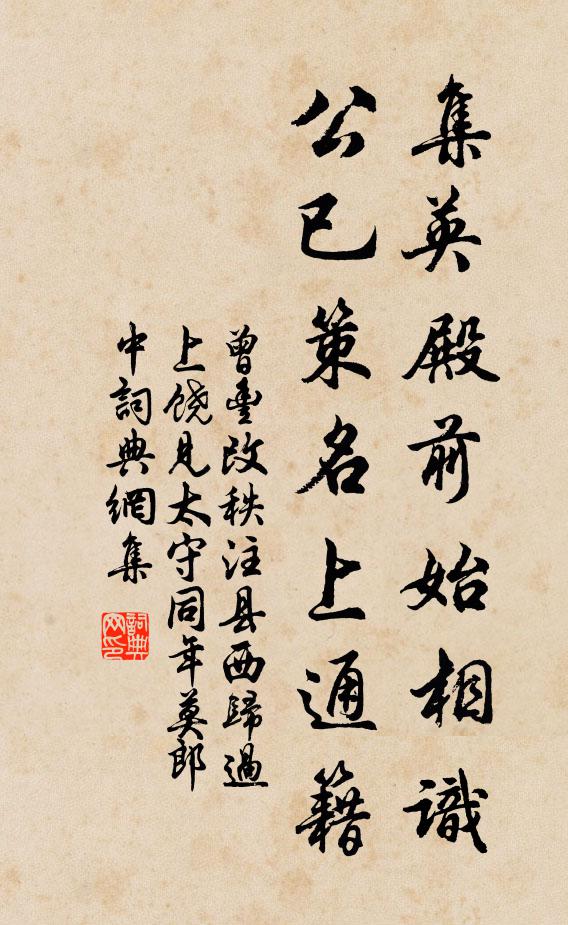 集英殿前始相識
公已策名上通籍
曾豐改秩注县西歸過
上饶見太守同年莫郎
中詞典網集
詞典
网印